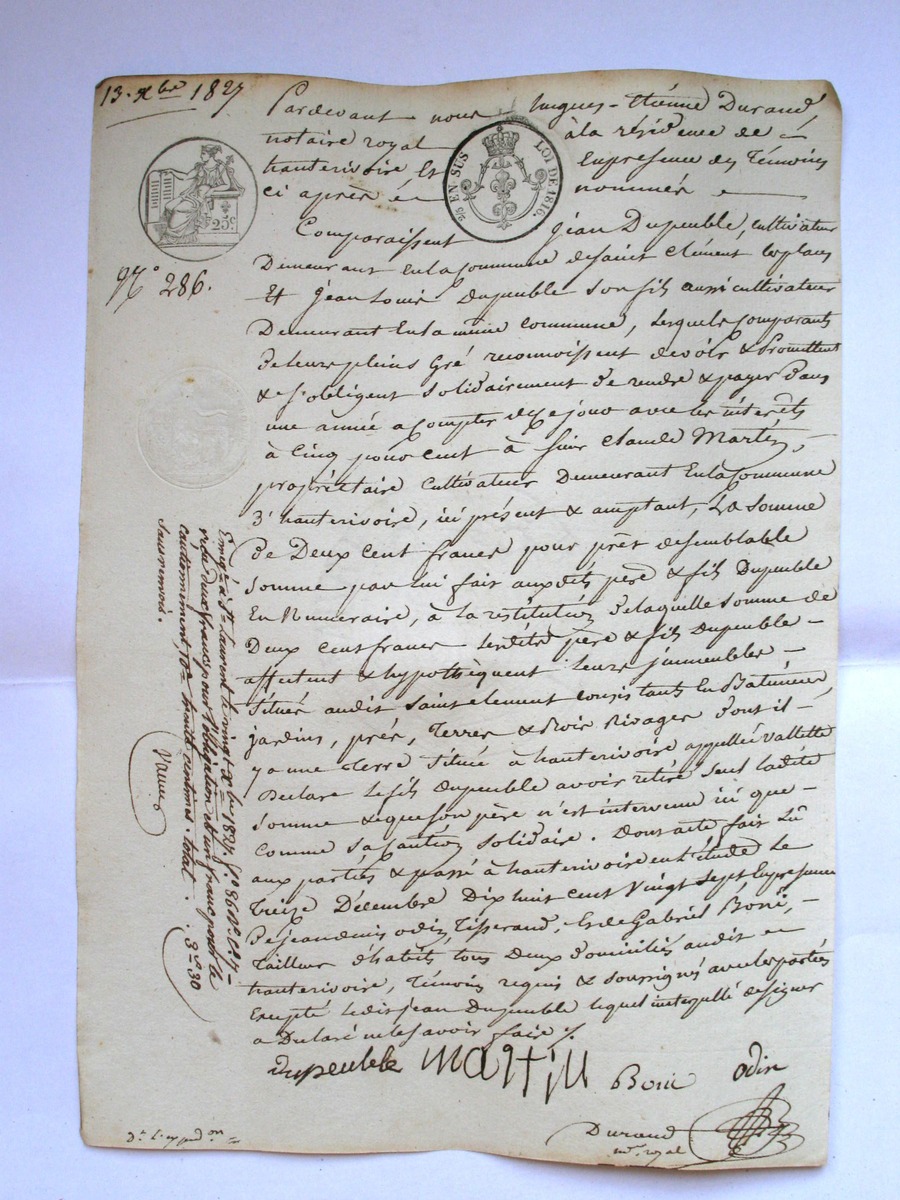 13. xbre 1827
Pardevant nous hugues-étiénne Durand
notaire royal à la résidence de
hauterivoire, Et En presence des Témoins
ci après nommés
25c
25 EN SUS LOI DE 1816.
Comparaissent jéan Dupeuble, cultivateur
Demeurant En la Commune de saint clément les places
Et jean Louis dupeuble son fils aussi cultivateur
Demeurant En la même commune, Lesquels comparants
de leurs pleins gré reconnoissent devoir & Promettent
& s'obligent solidairement de rendre & payer dans
une année a compter de ce jour avec les intérêts
à Cinq pour cent à sieur claude Martin,
propriétaire cultivateur Demeurant En la Commune
d'hauterivoire, ici présent & acceptant, La somme
De Deux cent francs pour prêt de semblable
somme par lui fait auxdits père & fils Dupeuble
En Numeraire, à la restitution de laquelle somme de
Deux cent francs Lesdits père & fils Dupeuble
affectent & hypothèquent leurs immeubles
situés audit saint clement consistants En Batiments,
jardins, prés, Terres & Bois Rivages dont il
y a une Terre située à hauterivoire appellée vallette
Declare le fils Dupeuble avoir retiré seul ladite
somme & que son père n'est intervenu ici que
comme sa caution solidaire. Dont acte fait Lû
aux parties & passé à hauterivoire en l'étude Le
treize Décembre Dix huit cent vingt sept En presence
De jean denis odin, Tisserand, & de Gabriel Boni,
Tailleur d'habits tous Deux domiciliés audit
hauterivoire, Témoins requis & soussignés avec les parties
Excepté ledit jean Dupeuble lequel interpellé de signer
a Declaré ne le savoir faire
dupeuble Martin Boni odin
Durand
nre royal
N° 286.
Enregé à St Laurent le vingt xbre 1827. f° 86
reçu deux francs pour l'obligation et un franc pour le
cautionnement, 10me trente centimes. total 3 30
sans renvois.